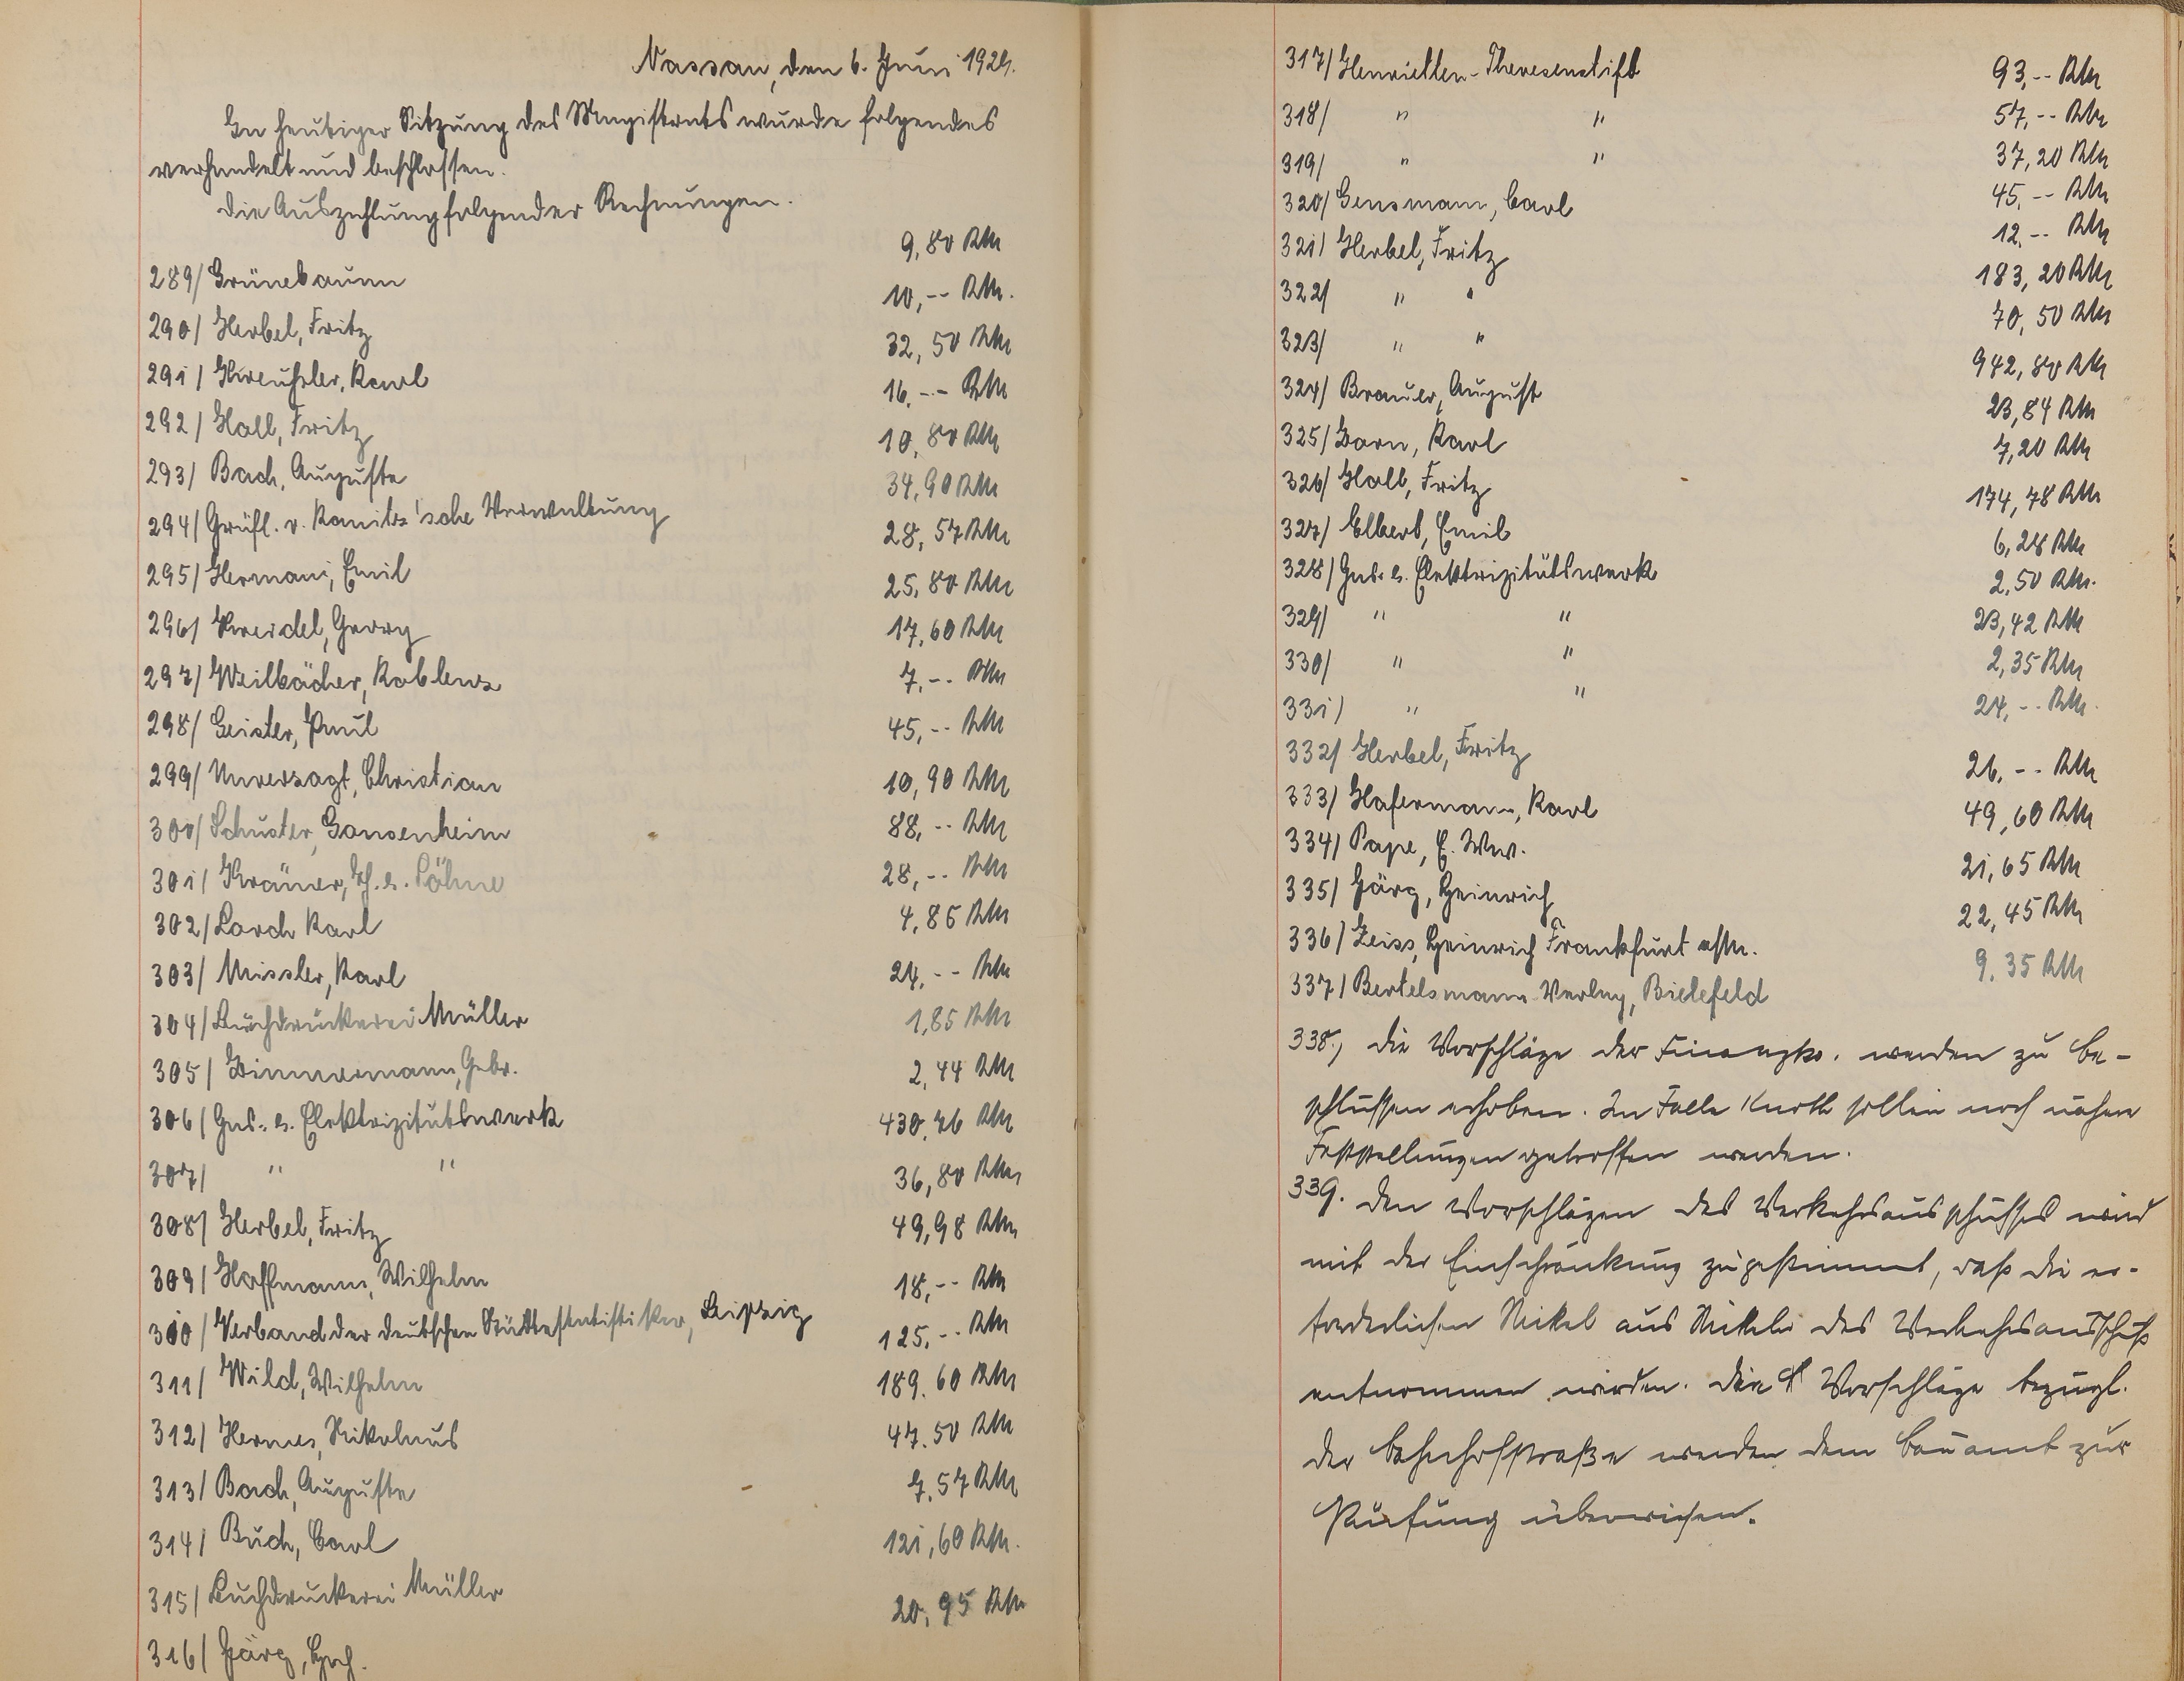 Nassau, den 6. Juni 1929.
In heutiger Sitzung des Magistrats wurde folgendes
verhandelt und beschlossen.
Die Auszahlung folgender Rechnungen.
289/ Grünebaum 9,80 RM
290/ Herbel, Fritz 10,-- RM.
291/ Kreußler, Karl 32,50 RM
292/ Holl, Fritz 16,-- RM
293/ Bach, Auguste 10,80 RM
294/ Gräfl. v. Kanitz'sche Verwaltung 34,90 RM
295/ Hermani, Emil 28,57 RM
296/ Kreidel, Georg 25,80 RM
297/ Weilbächer, Koblenz 17,60 RM
298/ Geisler, Paul 7,-- RM
299/ Unversagt, Christian 45,-- RM
300/ Schuster, Gonsenheim 10,90 RM
301/ Krämer, H. s. Söhne 88,-- RM
302/ Lorch Karl 28,-- RM
303/ Missler, Karl 4,86 RM
304/ Buchdruckerei Müller 24,-- RM
305/ Zimmermann, Gebr. 1,85 RM
306/ Gas- s. Elektrizitätswerk 2,44 RM
307/ " " 430,76 RM
308/ Herbel, Fritz 36,80 RM
309/ Hoffmann, Wilhelm 49,98 RM
310/ Verband der deutschen Städtestatistiker, Leipzig 18,-- RM
311/ Wild, Wilhelm 125,-- RM
312/ Hermes, Nikolaus 189.60 RM
313/ Bach, Auguste 47.50 RM
314/ Buch, Carl 7.57 RM
315/ Buchdruckerei Müller 121,60 RM.
316/ Jörg, Hch. 20,95 RM
317/ Henrietten-Theresenstift 93,-- RM
318/ " " 57,-- RM
319/ " " 37,20 RM
320/ Gensmann, Carl 45,-- RM
321/ Herbel, Fritz 12,-- RM
322/ " " 183,20 RM
323/ " " 70,50 RM
324/ Brauer, August 942,80 RM
325/ Zorn, Karl 23,84 RM
326/ Holl, Fritz 7,20 RM
327/ Elbert, Emil 174,78 RM
328/ Gas- s. Elektrizitätswerk 6,28 RM
329/ " " 2,50 RM.
330/ " " 23,42 RM
331/ " " 2,35 RM
332/ Herbel, Fritz 24,-- RM.
333/ Hafermann, Karl 26,-- RM
334/ Pape, E. Ww. 49,60 RM
335/ Jörg, Heinrich 21,65 RM
336/ Zeiss, Heinrich Frankfurt a/M. 22,45 RM
337/ Bertelsmann-Verlag, Bielefeld 9.35 RM
338., Die Vorschläge der Finanzko. werden zu Be-
schlüssen erhoben. Im Falle Knoth sollen noch nähere
Feststellungen getroffen werden.
339. Den Vorschlägen des Verkehrsausschusses wird
mit der Einschränkung zugestimmt, daß die er-
forderlichen Mittel aus Mitteln des Verkehrsausschuß
entnommen werden. Die Vorschläge bezügl.
der Bahnhofstraße werden dem Bauamt zur
Prüfung überwiesen.